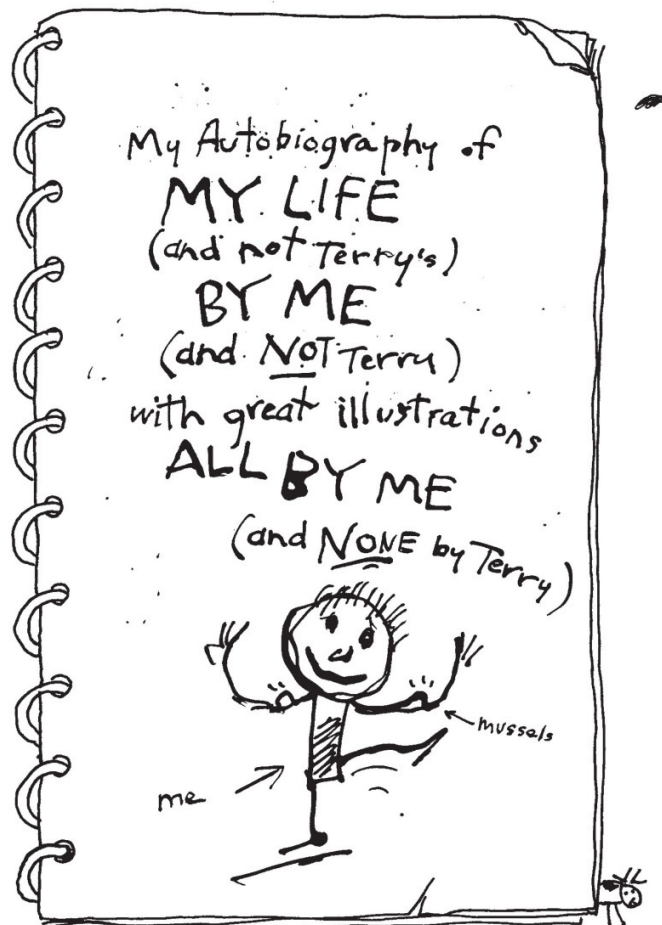 My Autobiography of
MY LIFE
(and not Terry's)
BY ME
(and NOT Terry)
with great illustrations
ALL BY ME
(and NONE by Terry)
mussels
me